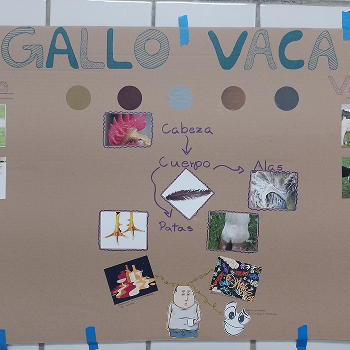 GALLO VACA
Cabeza
Cuerpo
Alas
Patas